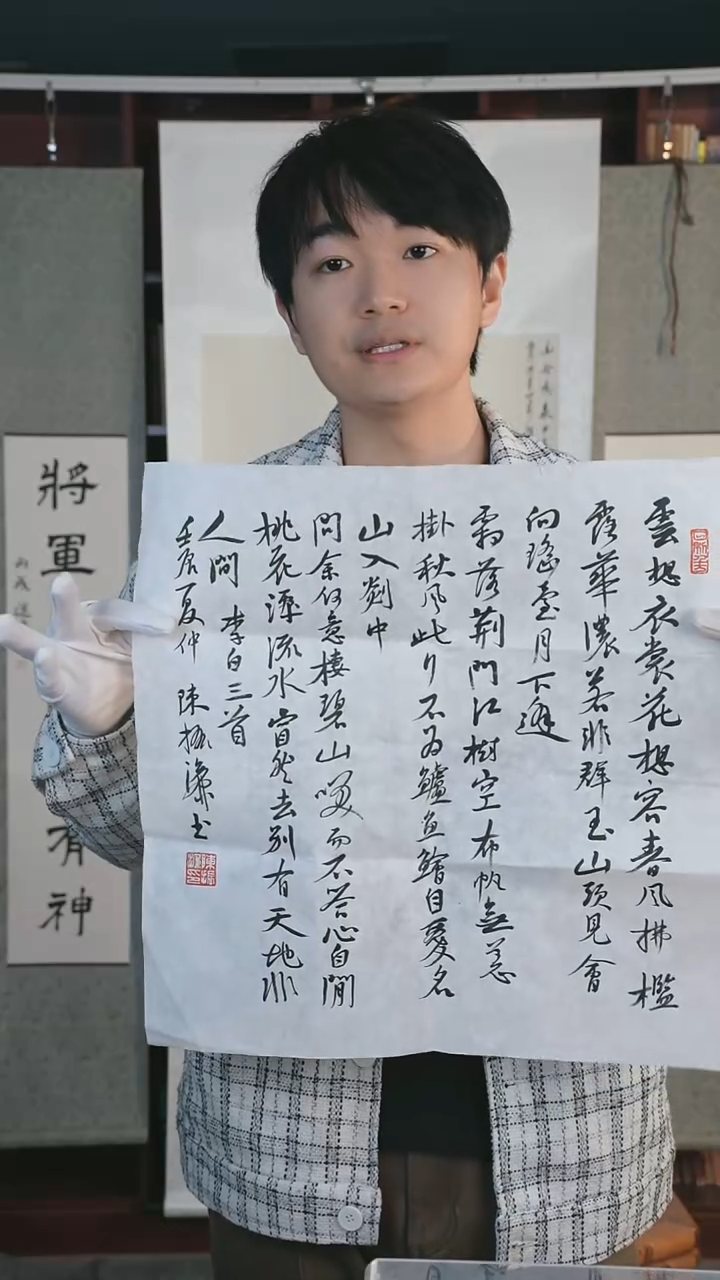 雲想衣裳花想容春風拂檻
露華濃若非群玉山頭見會
向瑤臺月下逢
霜落荆門江樹空布帆無恙
掛秋風此行不為鱸魚鱠自愛名
山入剡中
問余何意棲碧山笑而不答心自閒
桃花流水窅然去別有天地非
人間 李白三首
壬辰夏仲 陳振濂書
將軍
有神